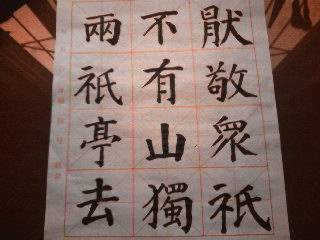 兩不猒
祇有敬
亭山眾
去獨祇